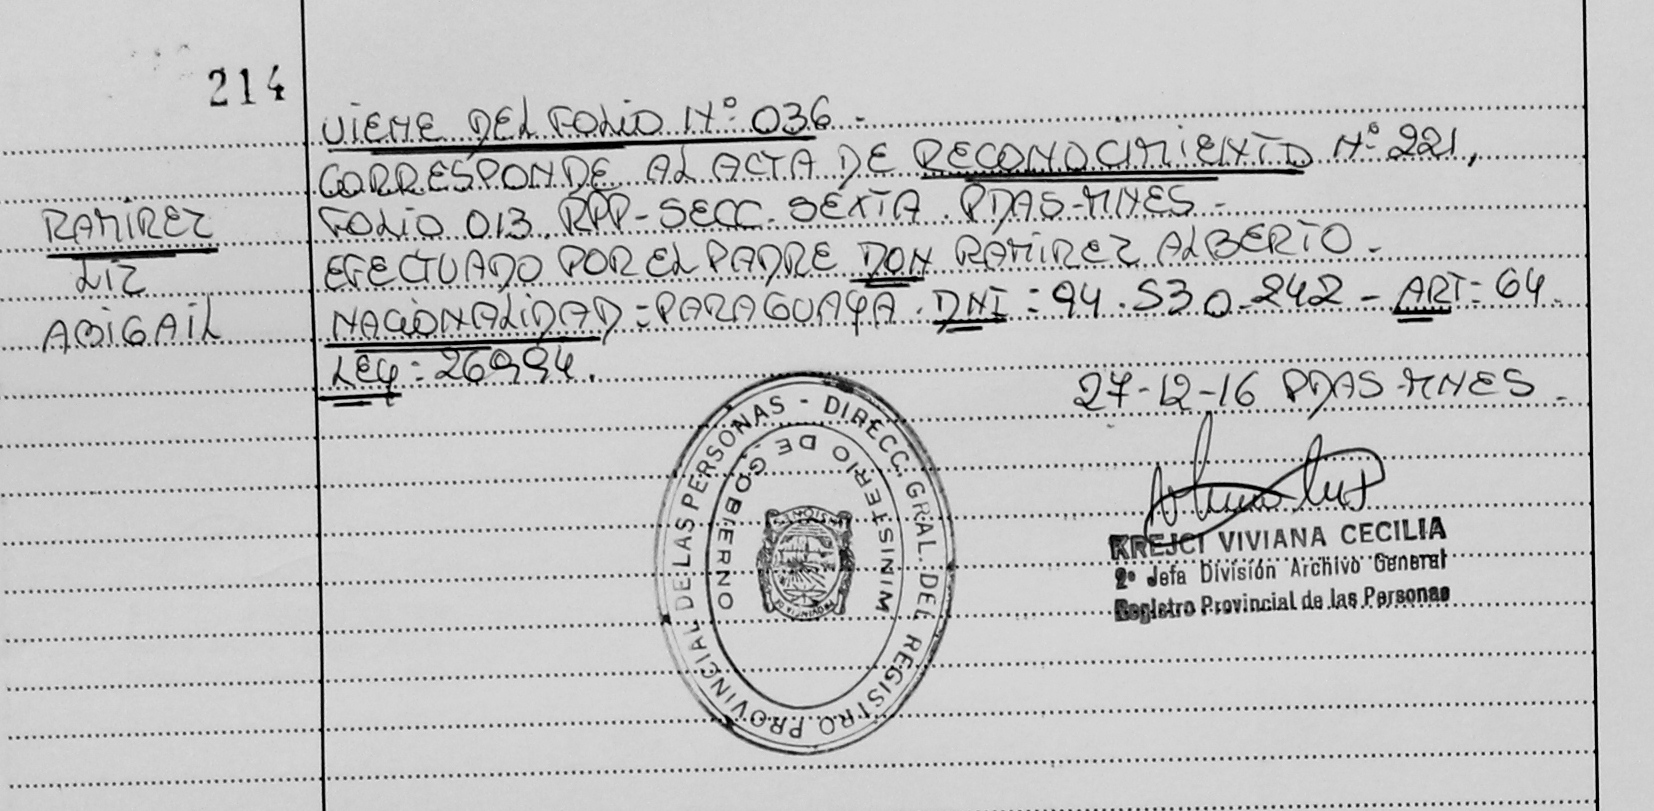 214
VIENE DEL FOLIO Nº 036 -
CORRESPONDE AL ACTA DE RECONOCIMIENTO Nº 221,
FOLIO 013 RPP - SECC. SEXTA. PDAS-MNES -
EFECTUADO POR EL PADRE DON RAMIREZ ALBERTO -
NACIONALIDAD = PARAGUAYA. DNI: 94.530.242 - ART: 64.
LEY: 26994.
RAMIREZ
LIZ
ABIGAIL
27-12-16 PDAS-MNES -
DIRECC. GRAL. DEL REGISTRO PROVINCIAL DE LAS PERSONAS -
MINISTERIO DE GOBIERNO
PROVINCIA DE MISIONES
KREJCI VIVIANA CECILIA
2º Jefa División Archivo General
Registro Provincial de las Personas